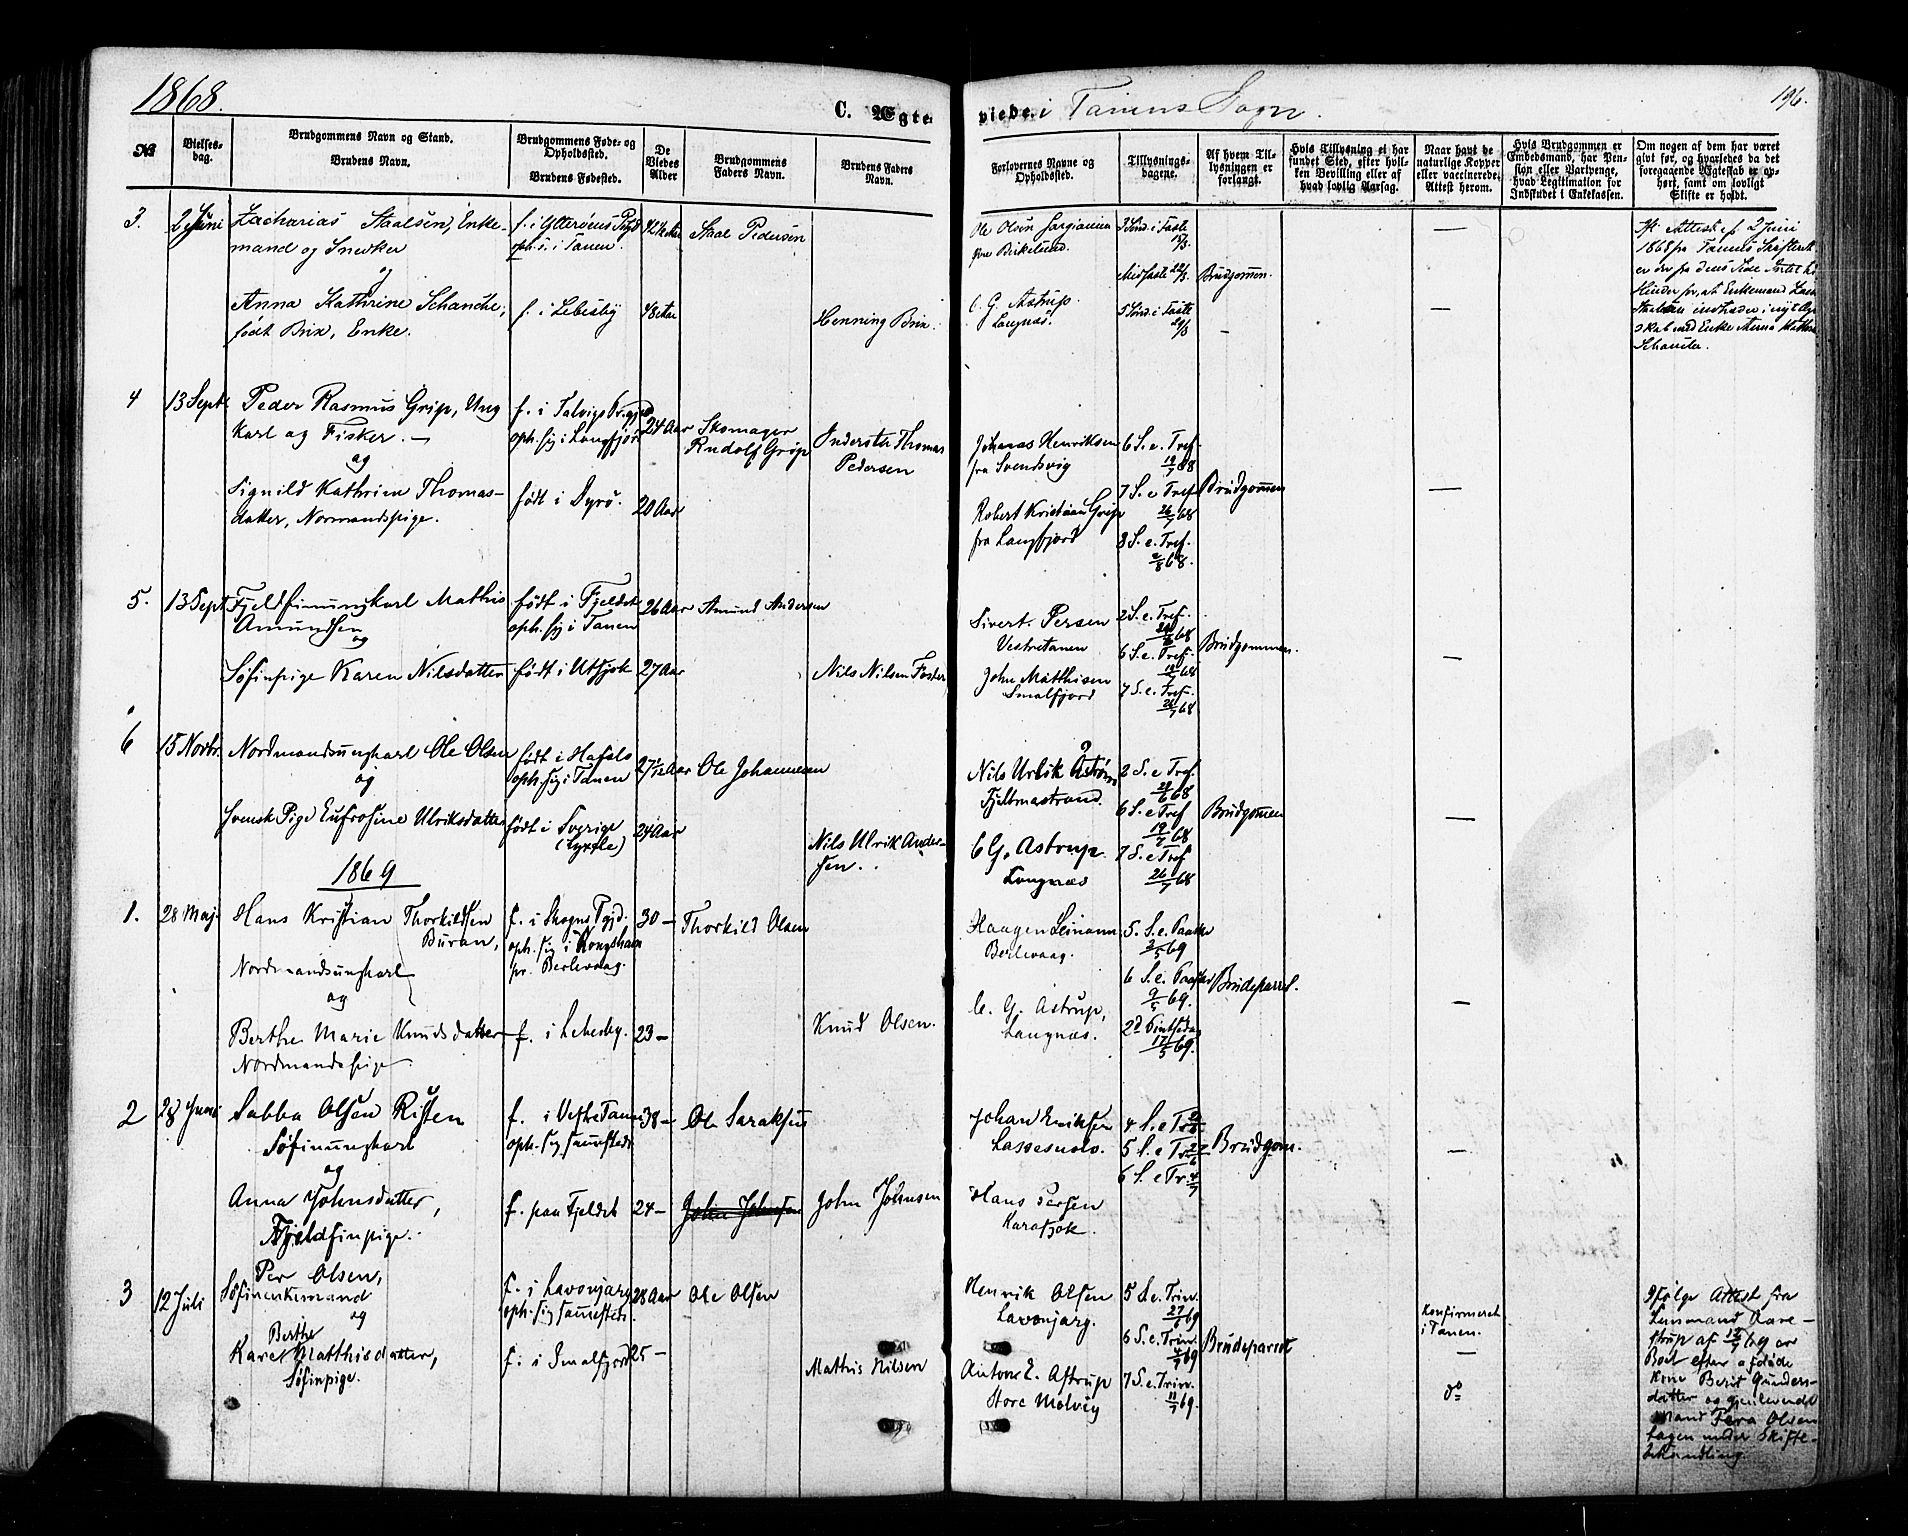 1868.
C. Ægte-
viede i Tanens Sogn.
196.
No
Vielses-
dag.
Brudgommens Navn og Stand.
Brudens Navn.
Brudgommens Føde- og
Opholdssted.
Brudens Fødested.
De
Viedes
Alder
Brudgommens
Faders Navn.
Brudens Faders
Navn.
Forlovernes Navne og
Opholdssted.
Tillysnings-
dagene.
Af hvem Til-
lysningen er
forlangt.
Hvis Tillysning ei har
fundet Sted, efter hvil-
ken Bevilling eller af
hvad lovlig Aarsag.
Naar havt de
naturlige Kopper
eller vaccinerede.
Attest herom.
Hvis Brudgommen er
Embedsmand, har Pen-
sion eller Vartpenge,
hvad Legitimation for
Indskudet i Enkekassen.
Om nogen af dem har været
givt før, og hvorledes da det
foregaaende Ægteskab er op-
hørt, samt om lovligt
Skifte er holdt.
3.
2 Juni
Zacharias Staalsen, Enke-
mand og Snedker
og
Anna Kathrine Schanche,
født Brix, Enke.
f. i Ytterøens
oph. s. i Tanen.
f. i Lebesby
42 Aar
48 Aar
Staal Pedersen
Henning Brix.
Ole Olsen
Birkelund.
C. G. Astrup
Langnæs.
3 Sønd. i Faste
15/3.
Midfaste 22/3
5 Sønd. i Faste
29/3
Brudgommen.
—
—
—
Attest af 2 Juni
1868 fra Tanens
er der fra dens Side Intet til
Hinder for, at Enkemand
Staalsen indtræder i nyt
skab med Enke Anna Kathr
Schanche.
4
13 Sept.
Peder Rasmus Grip, Ung
karl og Fisker. —
og
Signild Kathrine Thomas-
datter, Normandspige.
f. i Talvigs Pr.gjd.
oph. sig i Langfjord
født i Dyrø.
24 Aar
20 Aar
Skomager
Rudolf Grip
Inderste Thomas
Pedersen
Johanas Henriksen
fra Svendsvig
Robert Kristian Grip
fra Langfjord
6 S. e. Tref.
19/7 68
7 S. e Tref
26/7 68
8 S. e. Tref.
2/8 68.
Brudgommen
—
5.
13 Sept
Fjeldfinungkarl Mathis
Amundsen
og
Søfinpige Karen Nilsdatter
født i Fjeldet
oph. sig i Tanen
født i Utsjok
26 Aar
27 Aar
Amund Andersen
Nils Nilsen Foster
Sivert. Persen
Vestretanen
John Matthisen
Smalfjord
2 S. e. Tref.
68
6 S. e. Tref.
19/7 68
7 S. e. Tref.
26/7 68
Brudgommen.
—
6
15 Novbr.
Nordmandsungkarl Ole Olsen
og
Svensk Pige Eufrosine Ulriksdatter
født i Hafsls
oph. sig i Tanen
født i Sverige
27 Aar
24 Aar
Ole Johannesen
Nils Ulrik Ander-
sen.
Nils Urlik Åstrøm
Fjelmastrand.
C G. Astrup
Langnæs
2 S. e Tref.
68
6 S. e Tref
19/7 68
7 S. e Tref
26/7 68
Brudgommen
—
1869
1.
28 Maj.
Hans Kristian Thorkildsen
Buran,
Nordmandsungkarl
og
Berthe Marie Knudsdatter
Nordmandspige
f. i Skogns Pgjd.
oph. sig i Kongshavn
pr. Berlevaag.
f. i Lebesby.
30 —
23 —
Thorkild Olsen
Knud Olsen.
Haagen Leinann
Berlevaag.
C. G. Astrup,
Langnæs.
5. S. e. Paaske
2/5 69
6 S. e. Paaske
9/5 69.
2d Pintsedag
17/5 69.
Brudeparret.
—
2
28 Juni
Sabba Olsen Risten
Søfinungkarl
og
Anna Johnsdatter,
Fjeldfinpige.
f. i Vestre Tanen
oph. sig sammesteds
f. paa Fjeldet
38 —
24 —
Ole Saraksen
John Johnsen
John Johnsen
Johan Eriksen
Lassesnæs.
Hans Persen
Karasjok.
4 S. e Tr
5 S. e Tr 27/6
6 S. e Tr. 4/7
Brudgom.
—
3
12 Juli
Per Olsen,
Søfinenkemand
og
Berthe
Karen Matthisdatter,
Søfinpige.
f. i Lavonjarg
oph. sig sammesteds.
f. i Smalfjord
28 Aar
25 —
Ole Olsen
Mathis Nilsen
Henrik Olsen
Lavonjarg.
Anton E. Astrup
Store Molvig
5 S. e. Trin.
27/6 69
6 S. e. Trin.
4/7 69
7 S. e. Trin.
11/7 69.
Brudeparret
Konfirmeret
i Tanen.
—
do
Ifølge Attest fra
Lensmand Aare-
strup af 12/7 69 er
Boet efter afdøde
Kone Berit Gunders-
datter og gjenlevende
Mand Pera Olsen
tagen under Skifte-
behandling.